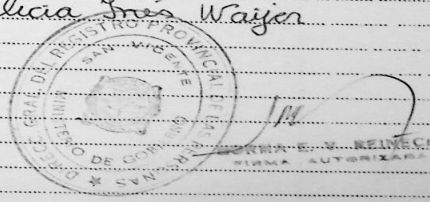 licia Inés Waijer
DIRECC. GRAL. DEL REGISTRO PROVINCIAL DE LAS PERSONAS
SAN VICENTE
MINISTERIO DE GOBIERNO
NORMA E. V. REINECK
FIRMA AUTORIZADA